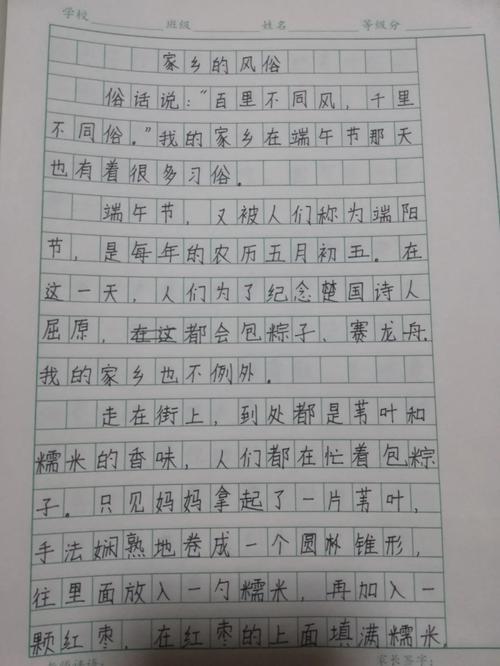 学校 班级 姓名 等级分
家乡的风俗
俗话说：“百里不同风，千里
不同俗。”我的家乡在端午节那天
也有着很多习俗。
端午节，又被人们称为端阳
节，是每年的农历五月初五。在
这一天，人们为了纪念楚国诗人
屈原，在这都会包粽子、赛龙舟.
我的家乡也不例外。
走在街上，到处都是苇叶和
糯米的香味，人们都在忙着包粽
子。只见妈妈拿起了一片苇叶，
手法娴熟地卷成一个圆锥形，
往里面放入一勺糯米，再加入一
颗红枣，在红枣的上面填满糯米.
家长签字：